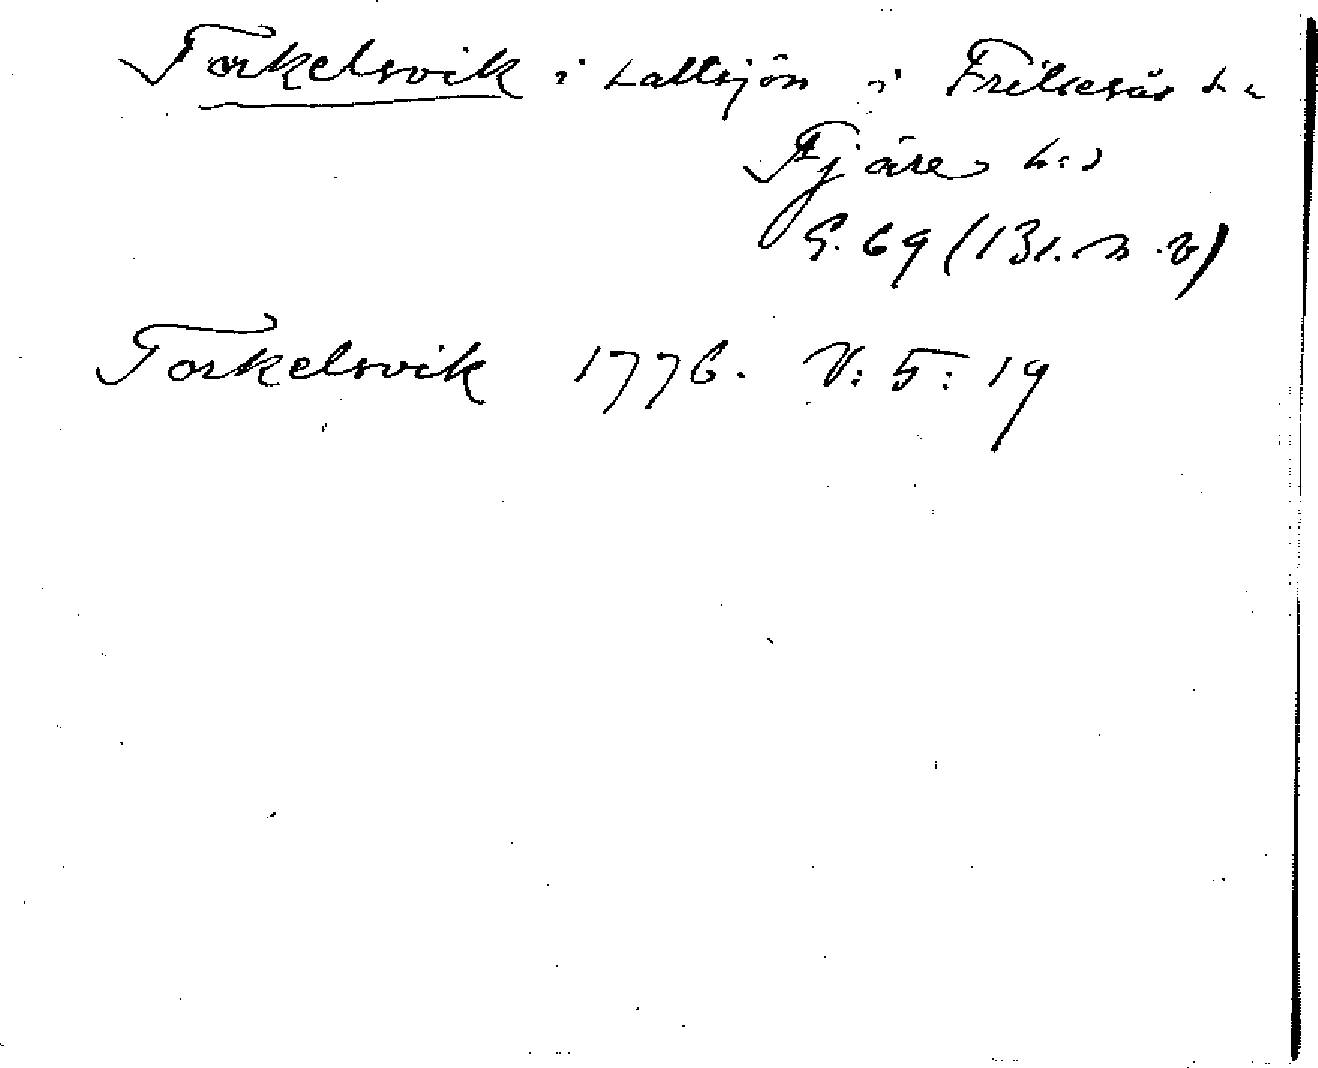 Torkelsvik i Lallsjön i Frillesås sn
Fjäre h:d
G. 69 (131. n. v)
Torkelsvik 1776. V: 5: 19